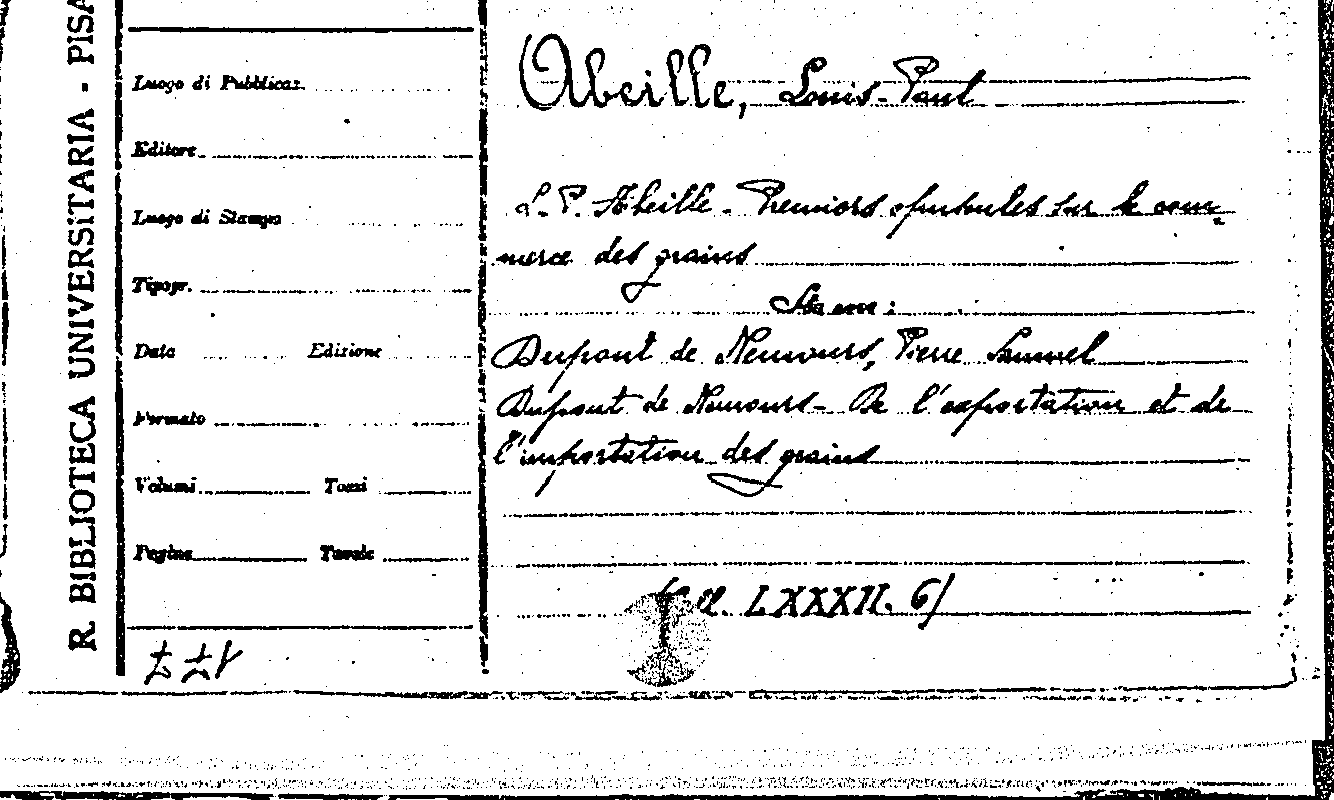 R. BIBLIOTECA UNIVERSITARIA - PISA
Luogo di Pubblicaz.
Editore
Luogo di Stampa
Tipogr.
Data Edizione
Formato
Volumi Tomi
Pagine Tavole
Abeille, Louis-Paul
L. P. Abeille - Premiers opuscules sur le com-
merce des grains
Dupont de Nemours, Pierre Samuel
Dupont de Nemours - De l'exportation et de
l'importation des grains
LXXXII. 6)